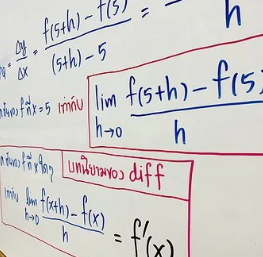 = Δy/Δx = f(5+h) - f(5) / (5+h) - 5 = / h
x=5 เท่ากับ lim h→0 f(5+h) - f(5) / h
บทนิยามของ diff
เท่ากับ lim h→0 f(x+h) - f(x) / h = f'(x)